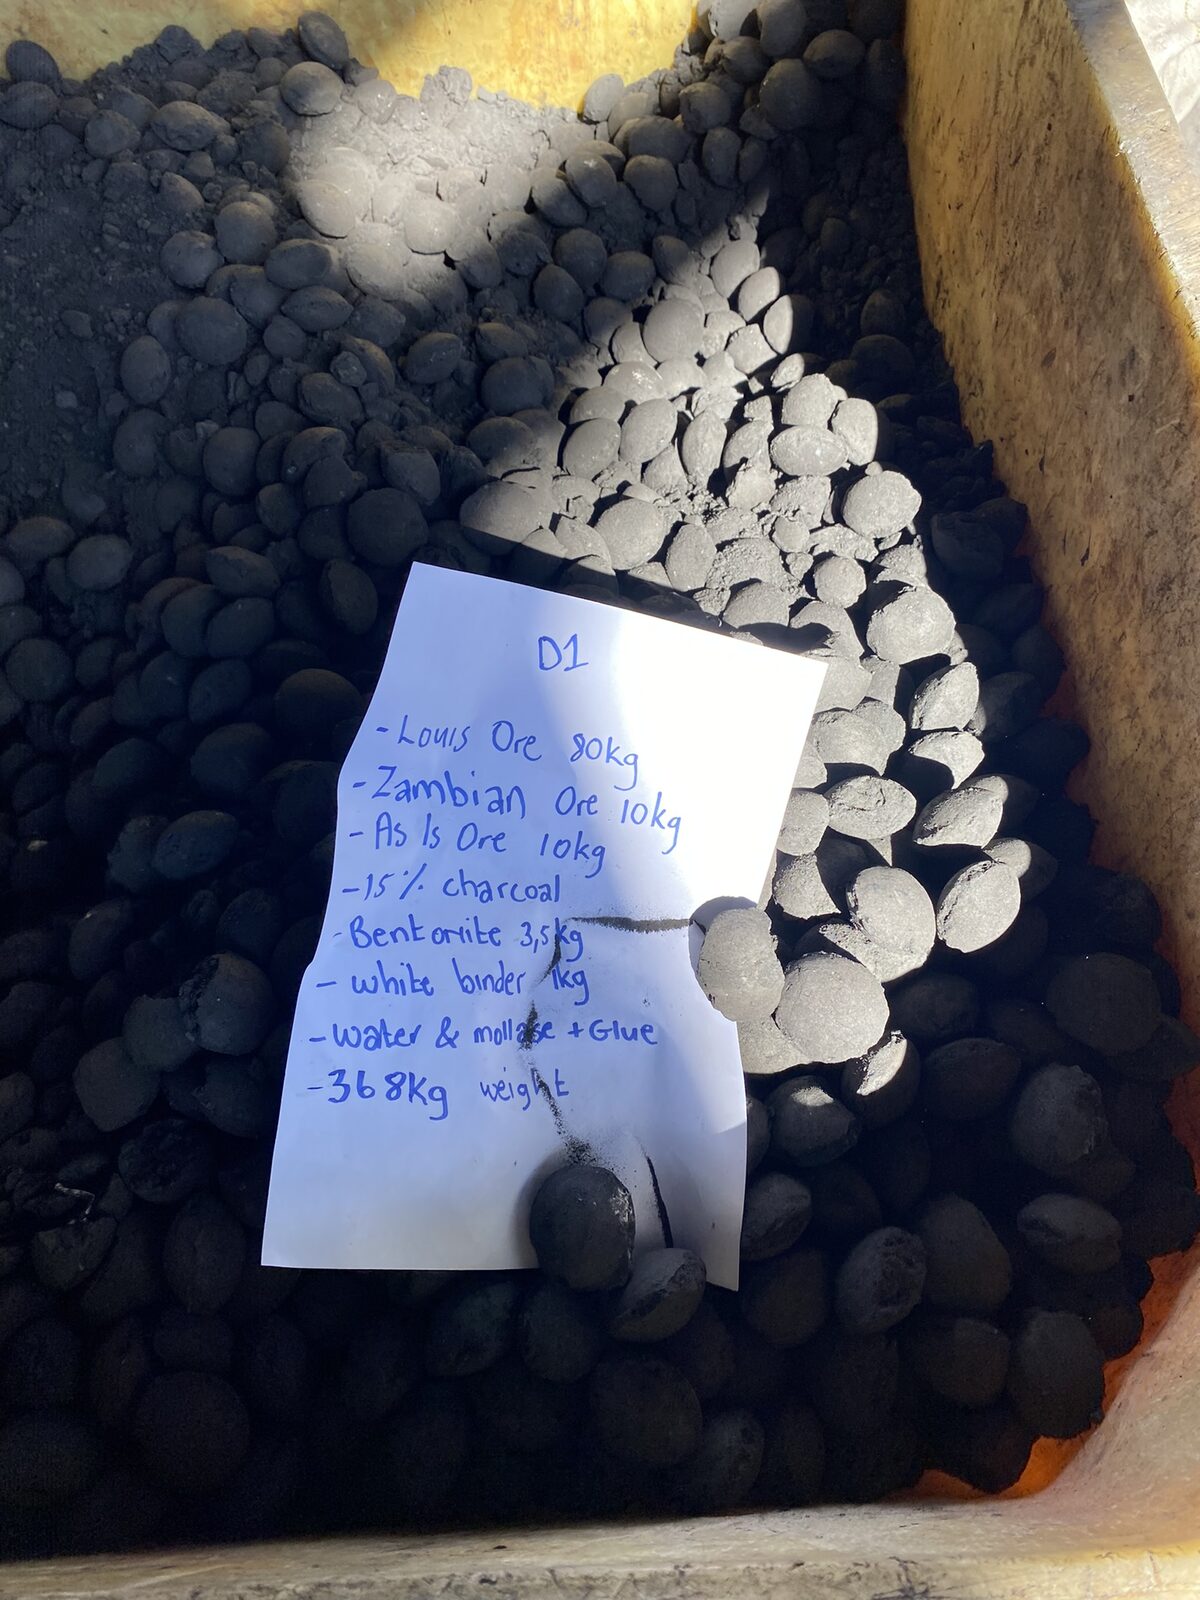 D1
- Louis Ore 80kg
- Zambian Ore 10kg
- As Is Ore 10kg
- 15% charcoal
- Bentonite 3,5kg
- white binder 1kg
- water & mollase + Glue
- 368kg weight